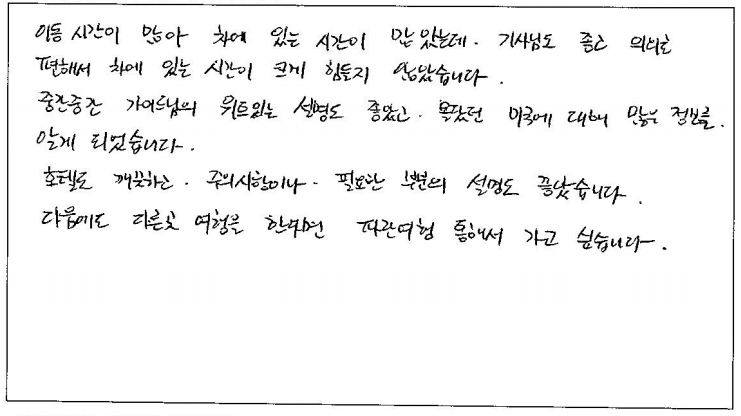 이동 시간이 많아 차에 있는 시간이 많았는데. 기사님도 좋고 의외로
편해서 차에 있는 시간이 크게 힘들지 않았습니다.
중간중간 가이드님의 위트있는 설명도 좋았고. 몰랐던 미국에 대해 많은 정보를.
알게 되었습니다.
호텔도 깨끗하고. 주의사항이나. 필요한 부분의 설명도 좋았습니다.
다음에도 다른곳 여행을 한다면 파란여행 통해서 가고 싶습니다.